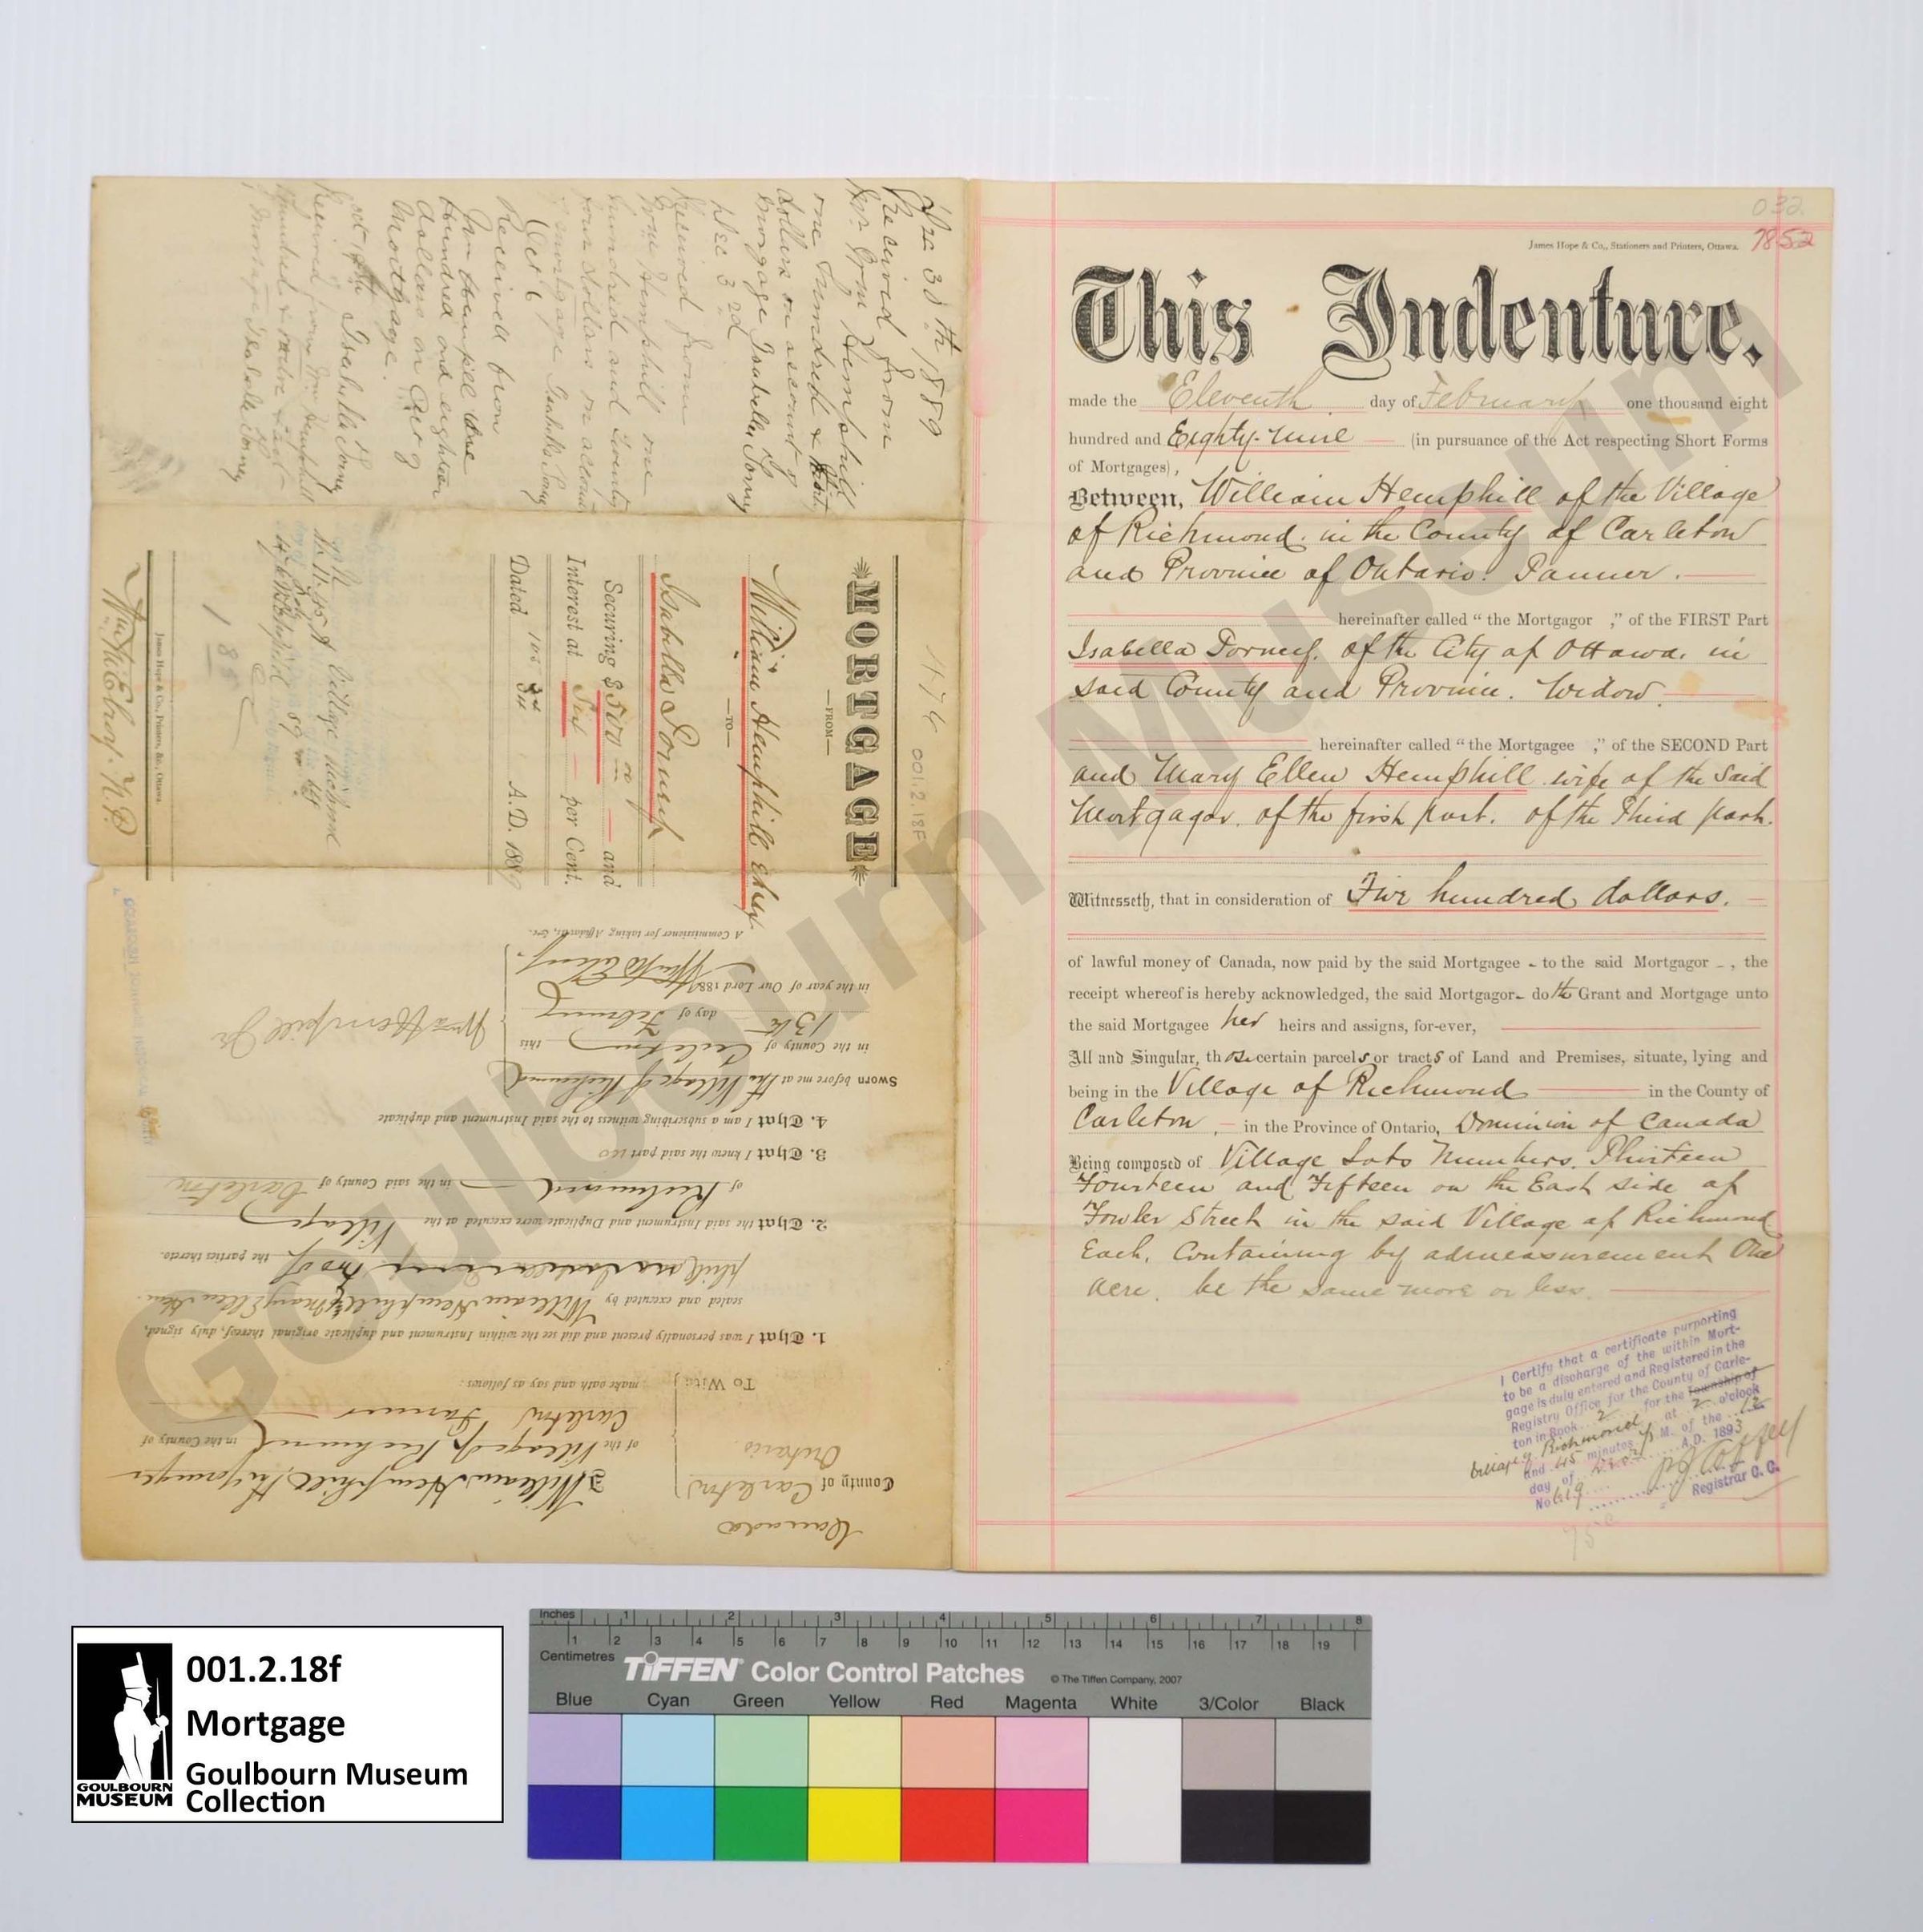 032
7852
James Hope & Co., Stationers and Printers, Ottawa.
This Indenture.
made the Eleventh day of February one thousand eight
hundred and Eighty-nine (in pursuance of the Act respecting Short Forms
of Mortgages),
Between, William Hemphill of the Village
of Richmond. in the County of Carleton
and Province of Ontario. Tanner.
hereinafter called "the Mortgagor ," of the FIRST Part
Isabella Dorney. of the City of Ottawa. in
said County and Province. Widow.
hereinafter called "the Mortgagee ," of the SECOND Part
and Mary Ellen Hemphill wife of the said
Mortgagor. of the first part. of the Third part.
Witnesseth, that in consideration of Five hundred dollars.
of lawful money of Canada, now paid by the said Mortgagee - to the said Mortgagor -, the
receipt whereof is hereby acknowledged, the said Mortgagor- doth Grant and Mortgage unto
the said Mortgagee her heirs and assigns, for-ever,
All and Singular, those certain parcels or tracts of Land and Premises, situate, lying and
being in the Village of Richmond in the County of
Carleton, in the Province of Ontario, Dominion of Canada
Being composed of Village Lots Numbers. Thirteen
Fourteen and Fifteen on the East side of
Fowler Street in the said Village of Richmond
Each. Containing by admeasurement One
acre. be the same more or less.
I Certify that a certificate purporting
to be a discharge of the within Mort-
gage is duly entered and Registered in the
Registry Office for the County of Carle-
ton in Book 2 for the Township of
Village of Richmond at 2 o'clock
and 45 minutes P.M. of the 12
day of A.D. 1893
No 619
Registrar C. C.
75c
Dec 30th 1889
Received from
Wm Hemphill
one hundred &
dollars on account of
Morgage Isabella Dorney
Dec 3rd
Received from
Wm Hemphill one
hundred and twenty
four dollars on account
of mortgage Isabella Dorney
Oct 6
Received from
Wm Hempill one
hundred and eighteen
dollars on
Mortgage.
Isabella Dorney
Received from Wm Hemphill
Isabella Dorney
476
001.2.18F
MORTGAGE
—FROM—
William Hemphill etux
—TO—
Isabella Dorney
Securing $500 00 and
Interest at Six per Cent.
Dated A.D. 1889
James Hope & Co., Printers, &c., Ottawa.
Canada
County of Carleton
Ontario
To Wit:
I William Hemphill the younger
of the Village of Richmond in the County of
Carleton Farmer
make oath and say as follows:
1. That I was personally present and did see the within Instrument and duplicate original thereof, duly signed,
sealed and executed by William Hemphill & Mary Ellen Hem-
phill two of the parties thereto.
2. That the said Instrument and Duplicate were executed at the Village
of Richmond in the said County of Carleton
3. That I know the said parties
4. That I am a subscribing witness to the said Instrument and duplicate
Sworn before me at the Village of Richmond
in the County of Carleton this
13th day of February
in the year of Our Lord 1889
Wm Hempill Jr
A Commissioner for taking Affidavits, &c.
Goulbourn Museum
001.2.18f
Mortgage
Goulbourn Museum
Collection
GOULBOURN
MUSEUM
Inches 1 2 3 4 5 6 7 8
1 2 3 4 5 6 7 8 9 10 11 12 13 14 15 16 17 18 19
Centimetres
TIFFEN Color Control Patches © The Tiffen Company, 2007
Blue Cyan Green Yellow Red Magenta White 3/Color Black